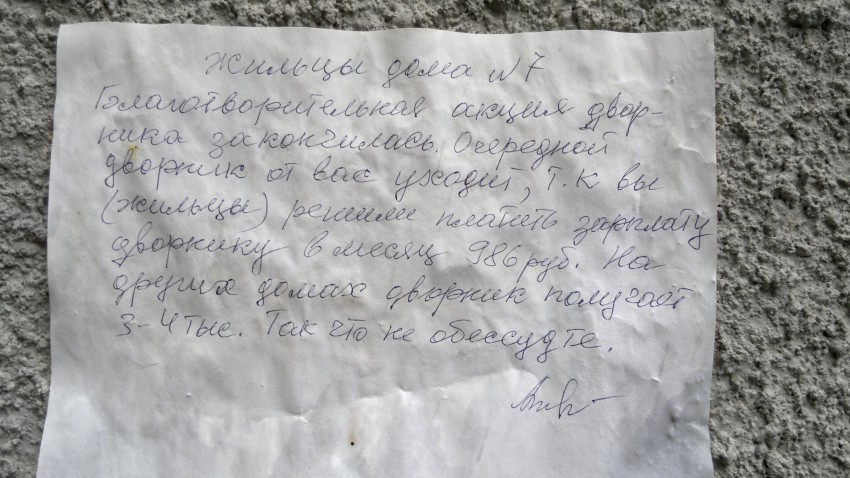 Жильцы дома N7
Благотворительная акция двор-
ника закончилась. Очередной
дворник от вас уходит, т.к вы
(жильцы) решили платить зарплату
дворнику в месяц 986 руб. На
других домах дворник получает
3-4 тыс. Так что не обессудте.